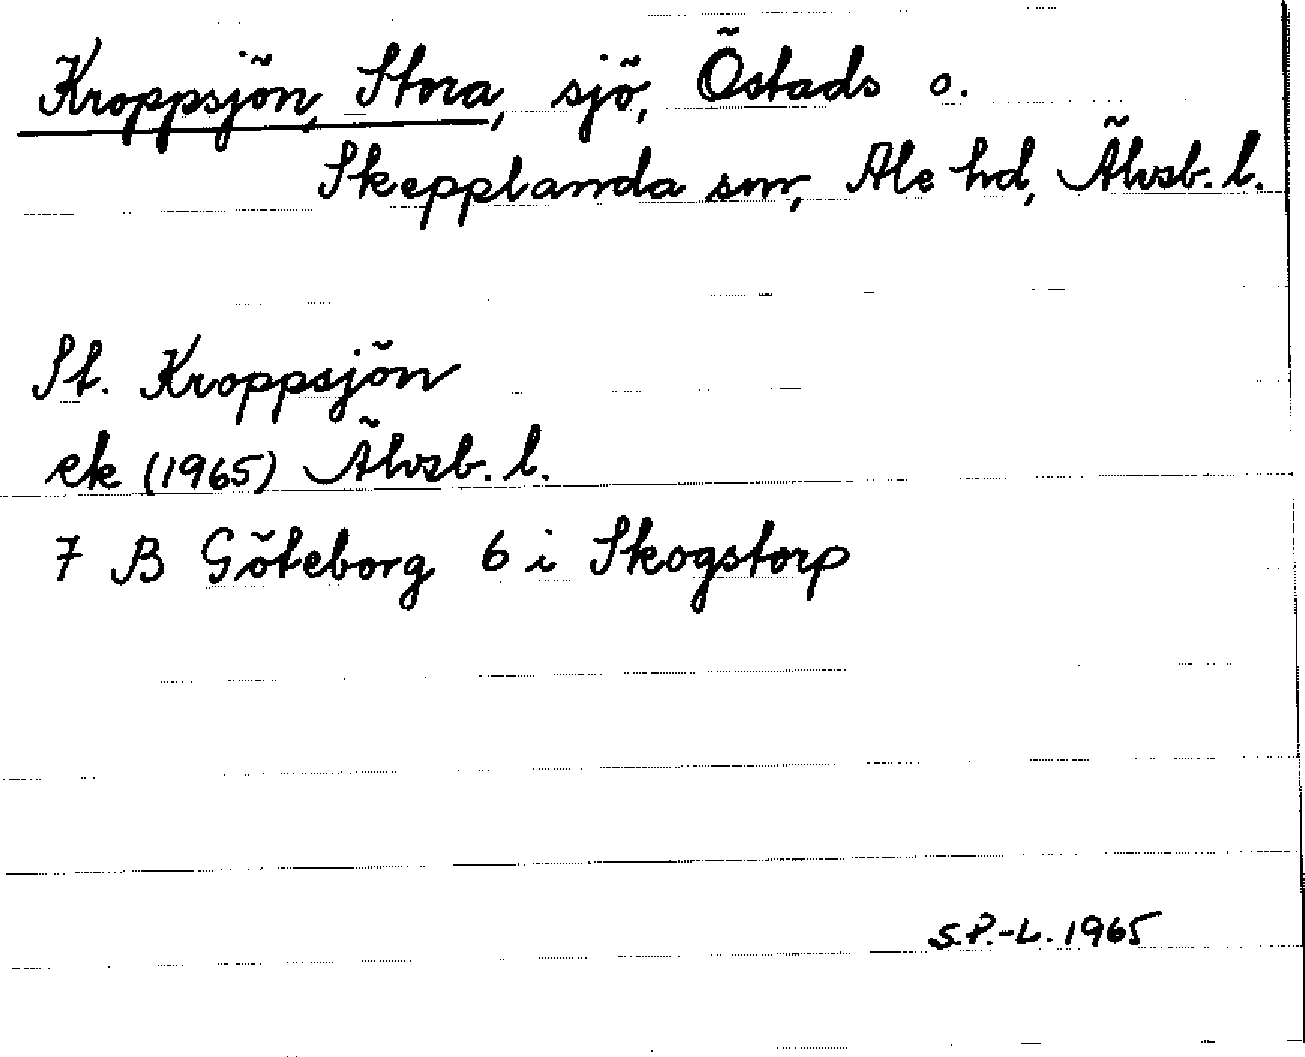 Kroppsjön, Stora, sjö, Östads o.
Skepplanda snr, Ale hd, Älvsb. l.
St. Kroppsjön
ek (1965) Älvsb. l.
7 B Göteborg 6 i Skogstorp
S.P.-L. 1965